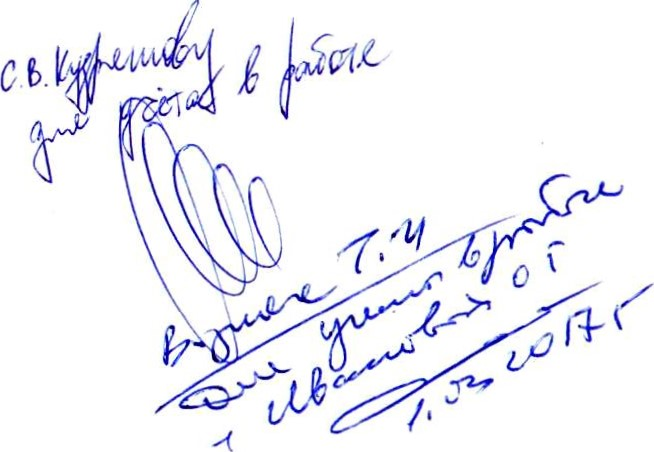 С.В. Кудряшову
для учёта в работе
Т.И
для учета в работе
Ивановой О Г
1.03 2017 г